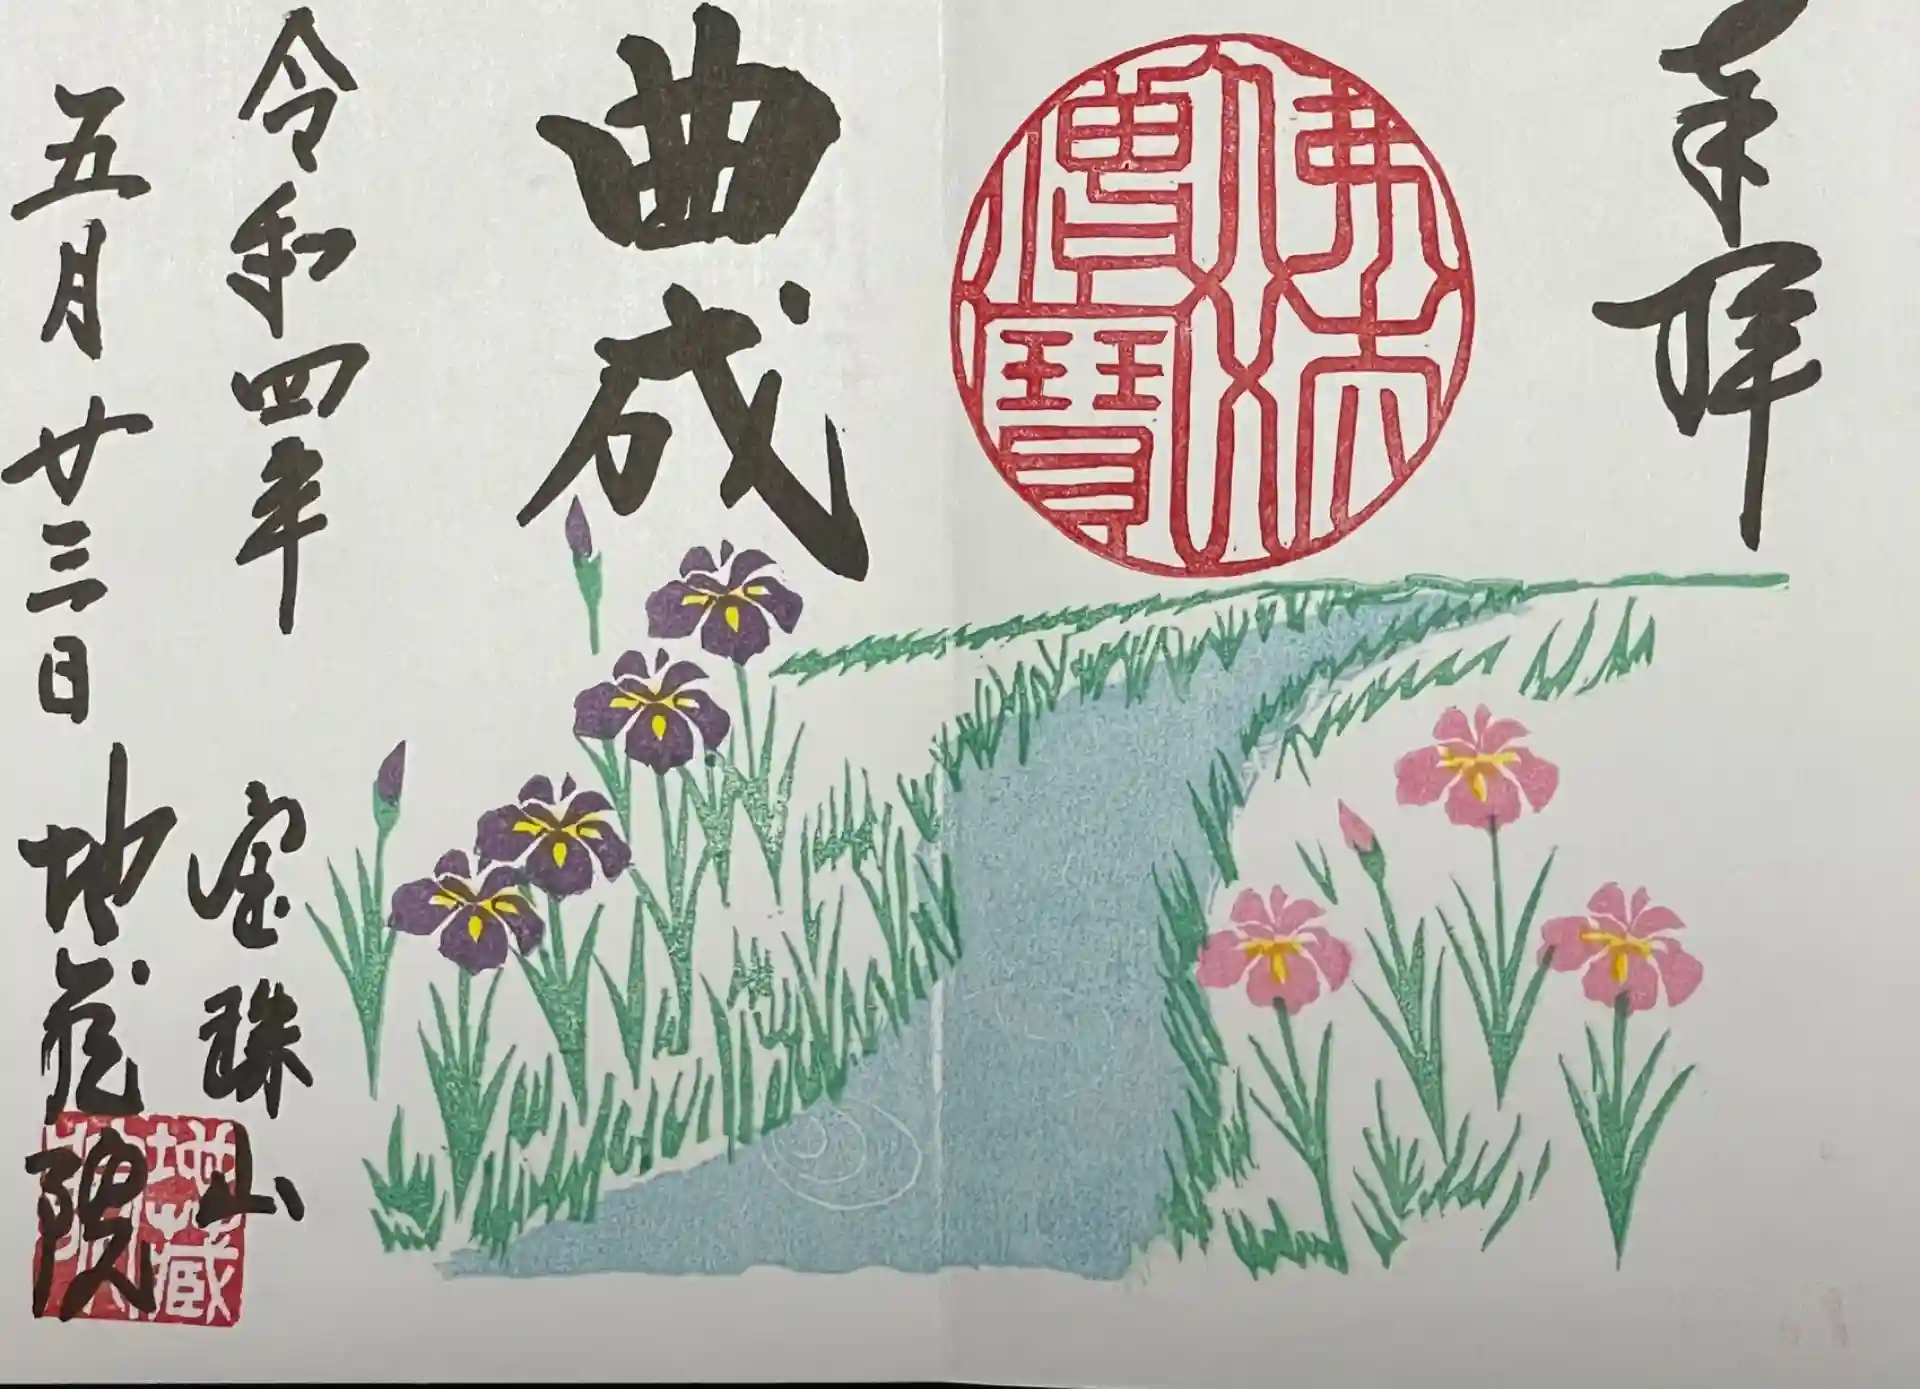 奉拝
佛法僧寶
曲成
令和四年
五月廿三日
宝珠山
地蔵院
地蔵院